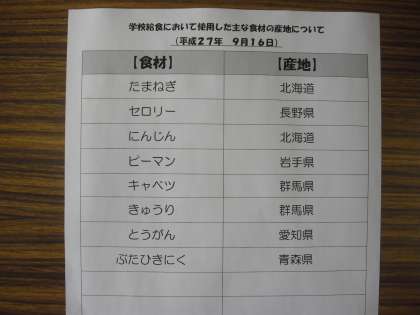 学校給食において使用した主な食材の産地について
(平成27年 9月16日)
【食材】 【産地】
たまねぎ 北海道
セロリー 長野県
にんじん 北海道
ピーマン 岩手県
キャベツ 群馬県
きゅうり 群馬県
とうがん 愛知県
ぶたひきにく 青森県